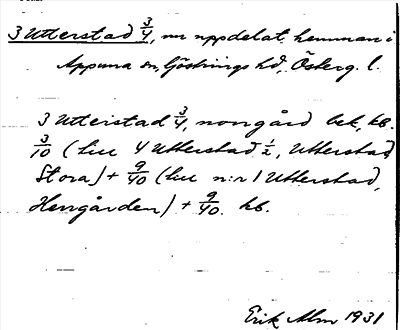 3 Utterstad 3/4, nu uppdelat hemman i
Appuna sn, Göstrings hd, Österg. l.
3 Utterstad 3/4, norrgård bek, kb.
3/10 (till 4 Utterstad 1/2, Utterstad
Stora) + 9/40 (till n:r 1 Utterstad,
Herrgården) + 9/40. kb.
Erik Alm 1931